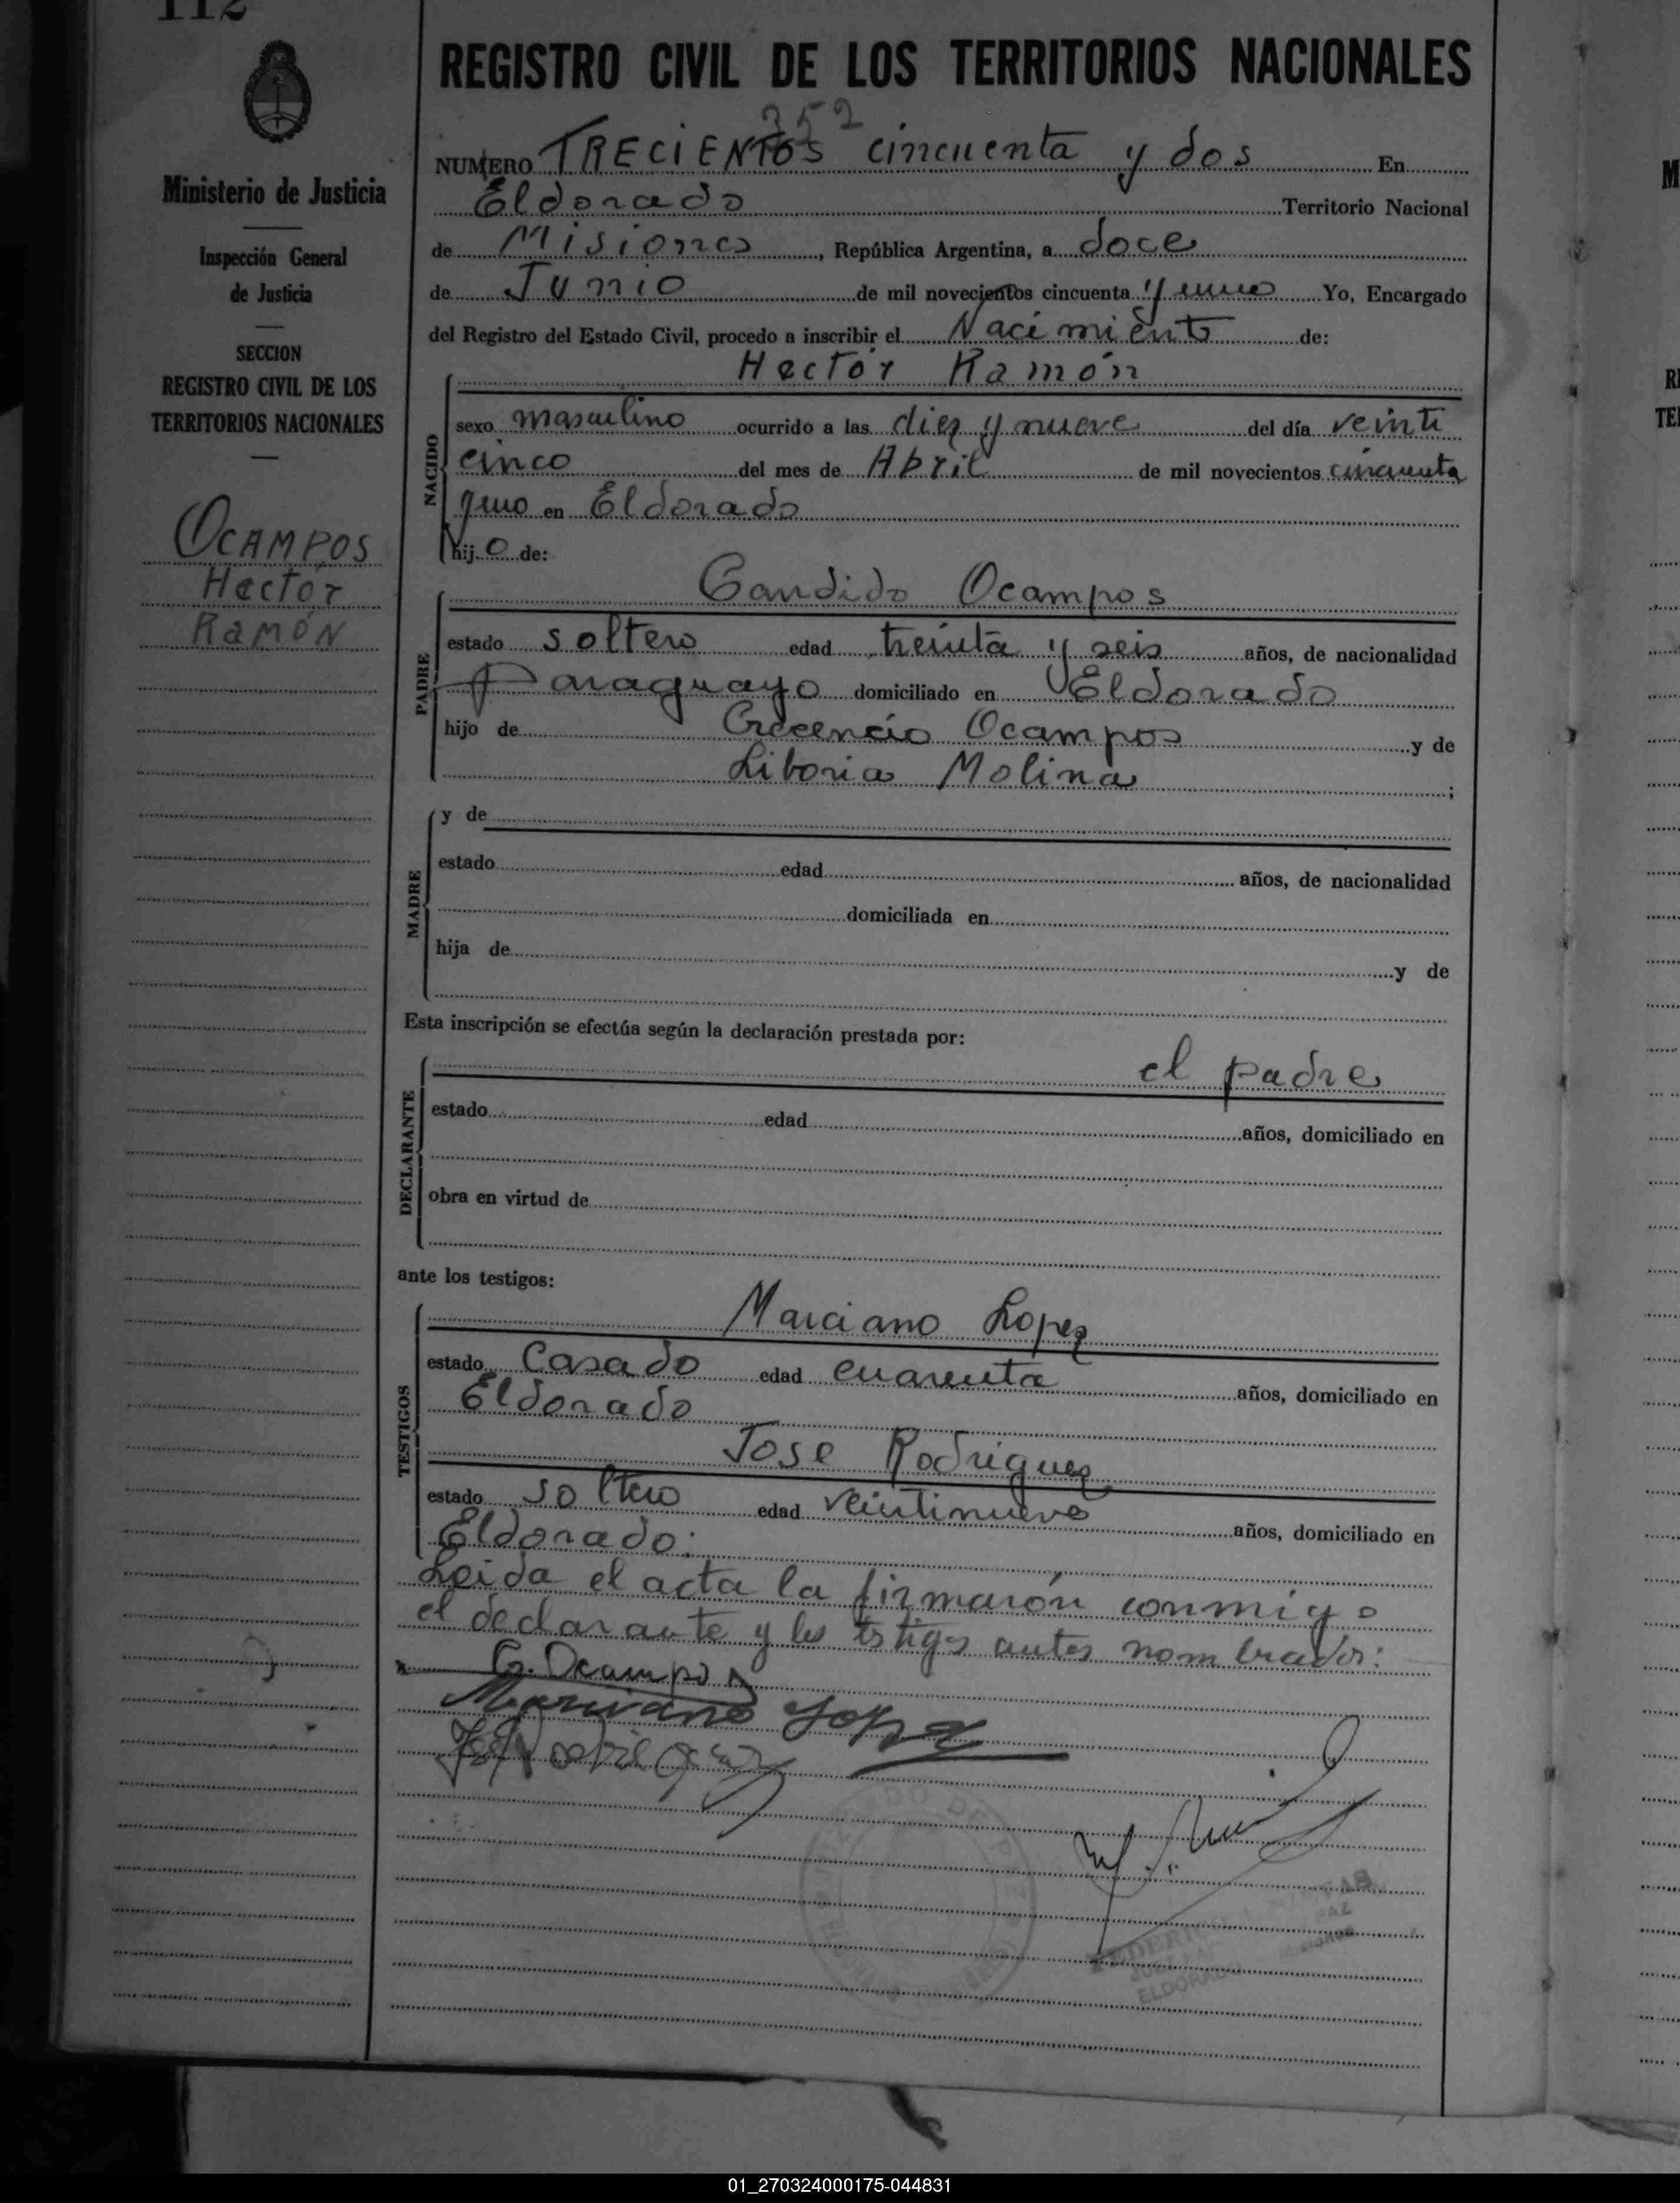 112
REGISTRO CIVIL DE LOS TERRITORIOS NACIONALES
Ministerio de Justicia
Inspección General
de Justicia
SECCION
REGISTRO CIVIL DE LOS
TERRITORIOS NACIONALES
OCAMPOS
Hectór
RAMÓN
352
NUMERO TRECIENTOS cincuenta y dos En
Eldorado Territorio Nacional
de Misiones, República Argentina, a doce
de Junio de mil novecientos cincuenta y uno Yo, Encargado
del Registro del Estado Civil, procedo a inscribir el Nacimiento de:
Hectór Ramón
NACIDO
sexo masculino ocurrido a las diez y nueve del día veinti
cinco del mes de Abril de mil novecientos cincuenta
y uno en Eldorado
hijo de:
PADRE
Candido Ocampos
estado soltero edad treinta y seis años, de nacionalidad
Paraguayo domiciliado en Eldorado
hijo de Crecencio Ocampos y de
Liboria Molina ;
MADRE
y de
estado edad años, de nacionalidad
domiciliada en
hija de y de
Esta inscripción se efectúa según la declaración prestada por:
DECLARANTE
el padre
estado edad años, domiciliado en
obra en virtud de
ante los testigos:
TESTIGOS
Marciano Lopez
estado Casado edad cuarenta años, domiciliado en
Eldorado
Jose Rodriguez
estado soltero edad veintinueve años, domiciliado en
Eldorado.
Leida el acta la firmarón conmigo
el declarante y los testigos antes nombrados:
C. Ocampos
Marciano Lopez
José Rodriguez
ELDORADO
01_270324000175-044831